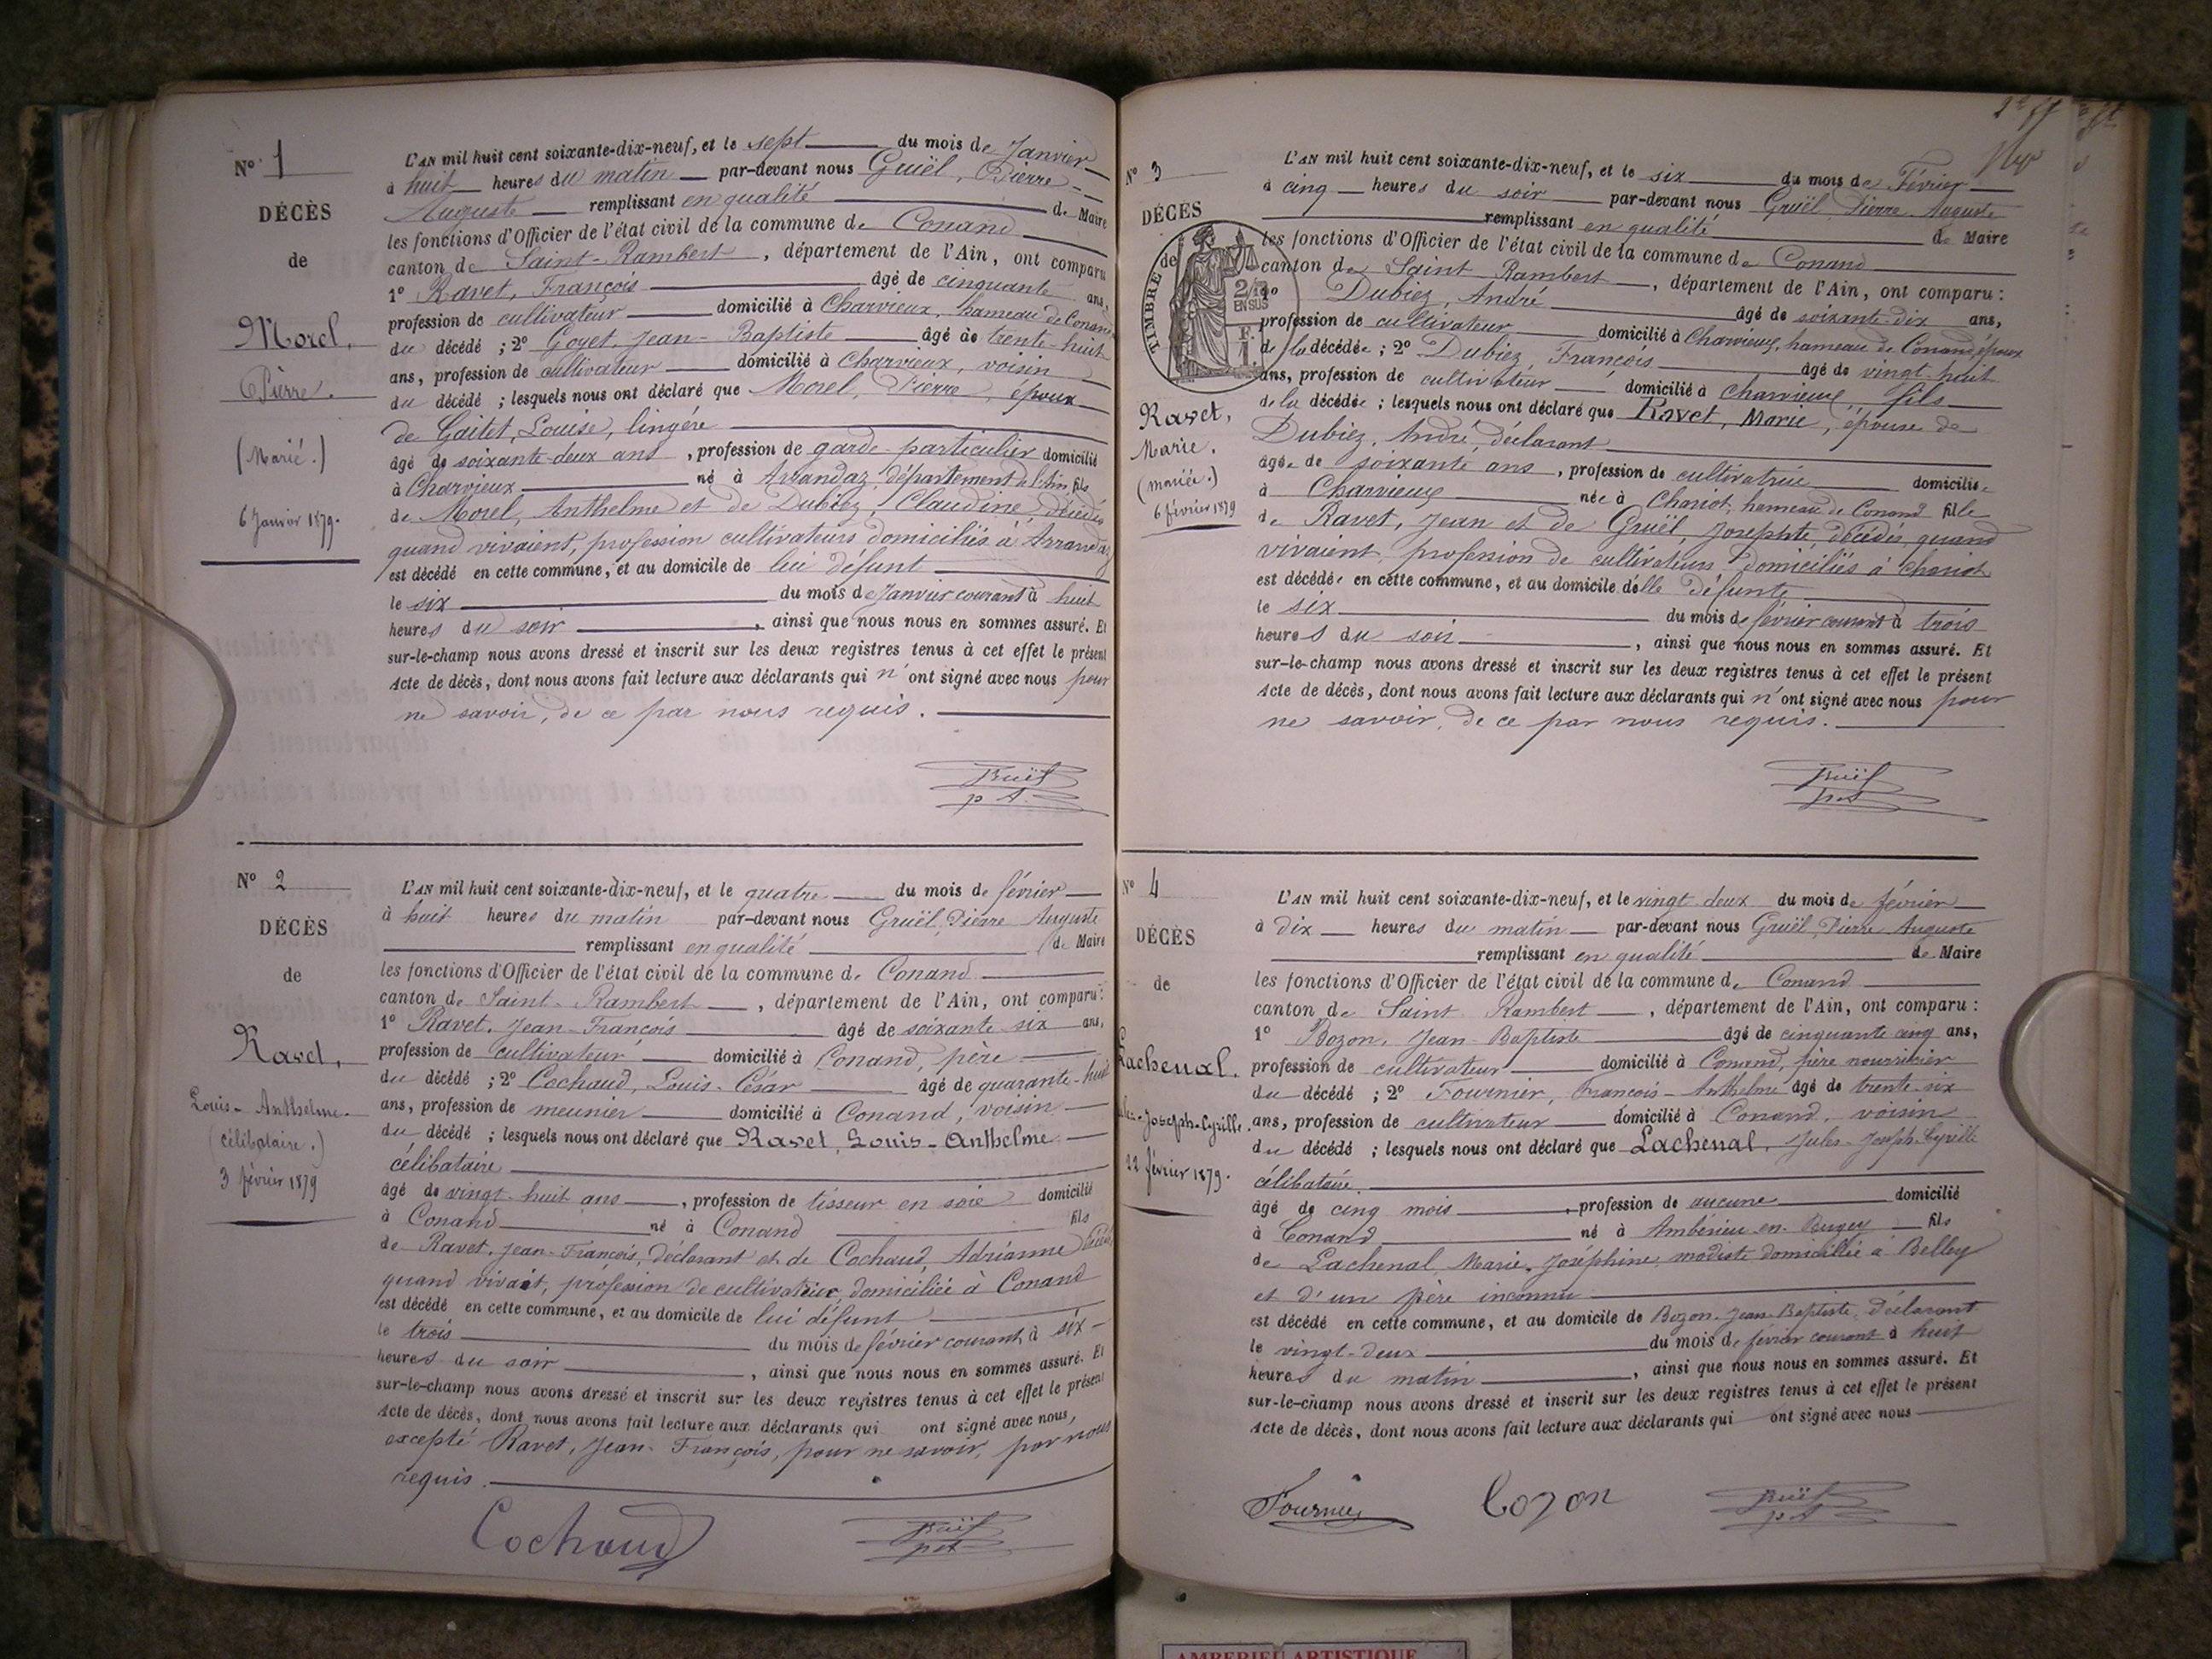 N° 1
DÉCÈS
de
Morel,
Pierre.
(Marié.)
6 Janvier 1879.
L'AN mil huit cent soixante-dix-neuf, et le sept du mois de Janvier
à huit heures du matin par-devant nous Gruël, Pierre-
Auguste remplissant en qualité de Maire
les fonctions d'Officier de l'état civil de la commune de Conand
canton de Saint-Rambert, département de l'Ain, ont comparu
1° Ravet, François âgé de cinquante ans,
profession de cultivateur domicilié à Charvieux, hameau de Conand
du décédé ; 2° Goyet, Jean-Baptiste âgé de trente-huit
ans, profession de cultivateur domicilié à Charvieux, voisin
du décédé ; lesquels nous ont déclaré que Morel, Pierre, époux
de Gaitet, Louise, lingère
âgé de soixante-deux ans, profession de garde-particulier domicilié
à Charvieux né à Arrandaz, département de l'Ain, fils
de Morel, Anthelme et de Dubiez, Claudine, décédés
quand vivaient, profession cultivateurs domiciliés à Arrandaz
est décédé en cette commune, et au domicile de lui défunt
le six du mois de Janvier courant à huit
heures du soir, ainsi que nous nous en sommes assuré. Et
sur-le-champ nous avons dressé et inscrit sur les deux registres tenus à cet effet le présent
acte de décès, dont nous avons fait lecture aux déclarants qui n'ont signé avec nous pour
ne savoir, de ce par nous requis.
Gruël
p A
N° 2
DÉCÈS
de
Ravet,
Louis-Anthelme.
(célibataire.)
3 février 1879
L'AN mil huit cent soixante-dix-neuf, et le quatre du mois de février
à huit heures du matin par-devant nous Gruël, Pierre Auguste
remplissant en qualité de Maire
les fonctions d'Officier de l'état civil de la commune de Conand
canton de Saint-Rambert, département de l'Ain, ont comparu :
1° Ravet, Jean-François âgé de soixante six ans,
profession de cultivateur domicilié à Conand, père
du décédé ; 2° Cochaud, Louis-César âgé de quarante-huit
ans, profession de meunier domicilié à Conand, voisin
du décédé ; lesquels nous ont déclaré que Ravet, Louis-Anthelme
célibataire
âgé de vingt-huit ans, profession de tisseur en soie domicilié
à Conand né à Conand fils
de Ravet, Jean-François, déclarant et de Cochaud, Adrianne décédée
quand vivait, profession de cultivatrice, domiciliée à Conand
est décédé en cette commune, et au domicile de lui défunt
le trois du mois de février courant, à six
heures du soir, ainsi que nous nous en sommes assuré. Et
sur-le-champ nous avons dressé et inscrit sur les deux registres tenus à cet effet le présent
acte de décès, dont nous avons fait lecture aux déclarants qui ont signé avec nous,
excepté Ravet, Jean-François, pour ne savoir, par nous
requis.
Cochaud
Gruël
p A
N° 3
DÉCÈS
de
TIMBRE
2/10
EN SUS
Ravet,
Marie.
(mariée.)
6 février 1879
L'AN mil huit cent soixante-dix-neuf, et le six du mois de Février
à cinq heures du soir par-devant nous Gruël, Pierre Auguste
remplissant en qualité de Maire
les fonctions d'Officier de l'état civil de la commune de Conand
canton de Saint Rambert, département de l'Ain, ont comparu :
1° Dubiez, André âgé de soixante-dix ans,
profession de cultivateur domicilié à Charvieux, hameau de Conand, époux
de la décédée ; 2° Dubiez, François âgé de vingt-huit
ans, profession de cultivateur domicilié à Charvieux, fils
de la décédée ; lesquels nous ont déclaré que Ravet, Marie, épouse de
Dubiez, André, déclarant
âgée de soixante ans, profession de cultivatrice domiciliée
à Charvieux née à Chariot, hameau de Conand fille
de Ravet, Jean et de Gruël, Josephte, décédés, quand
vivaient, profession de cultivateurs domiciliés à Chariot
est décédée en cette commune, et au domicile d'elle défunte
le six du mois de février courant à trois
heures du soir, ainsi que nous nous en sommes assuré. Et
sur-le-champ nous avons dressé et inscrit sur les deux registres tenus à cet effet le présent
acte de décès, dont nous avons fait lecture aux déclarants qui n'ont signé avec nous pour
ne savoir, de ce par nous requis.
Gruël
p A
N° 4
DÉCÈS
de
Lachenal.
Joseph-Cyrille.
22 février 1879.
L'AN mil huit cent soixante-dix-neuf, et le vingt-deux du mois de février
à dix heures du matin par-devant nous Gruël, Pierre Auguste
remplissant en qualité de Maire
les fonctions d'Officier de l'état civil de la commune de Conand
canton de Saint Rambert, département de l'Ain, ont comparu :
1° Bozon, Jean-Baptiste âgé de cinquante cinq ans,
profession de cultivateur domicilié à Conand, père nourricier
du décédé ; 2° Fournier, François-Anthelme âgé de trente-six
ans, profession de cultivateur domicilié à Conand, voisin
du décédé ; lesquels nous ont déclaré que Lachenal, Jules-Joseph-Cyrille
célibataire
âgé de cinq mois, profession de aucune domicilié
à Conand né à Ambérieu-en-Bugey fils
de Lachenal, Marie-Joséphine, modiste domiciliée à Belley
et d'un père inconnu
est décédé en cette commune, et au domicile de Bozon, Jean-Baptiste, déclarant
le vingt-deux du mois de février courant à huit
heures du matin, ainsi que nous nous en sommes assuré. Et
sur-le-champ nous avons dressé et inscrit sur les deux registres tenus à cet effet le présent
acte de décès, dont nous avons fait lecture aux déclarants qui ont signé avec nous
Fournier
Bozon
Gruël
p A
AMBERIEU ARTISTIQUE